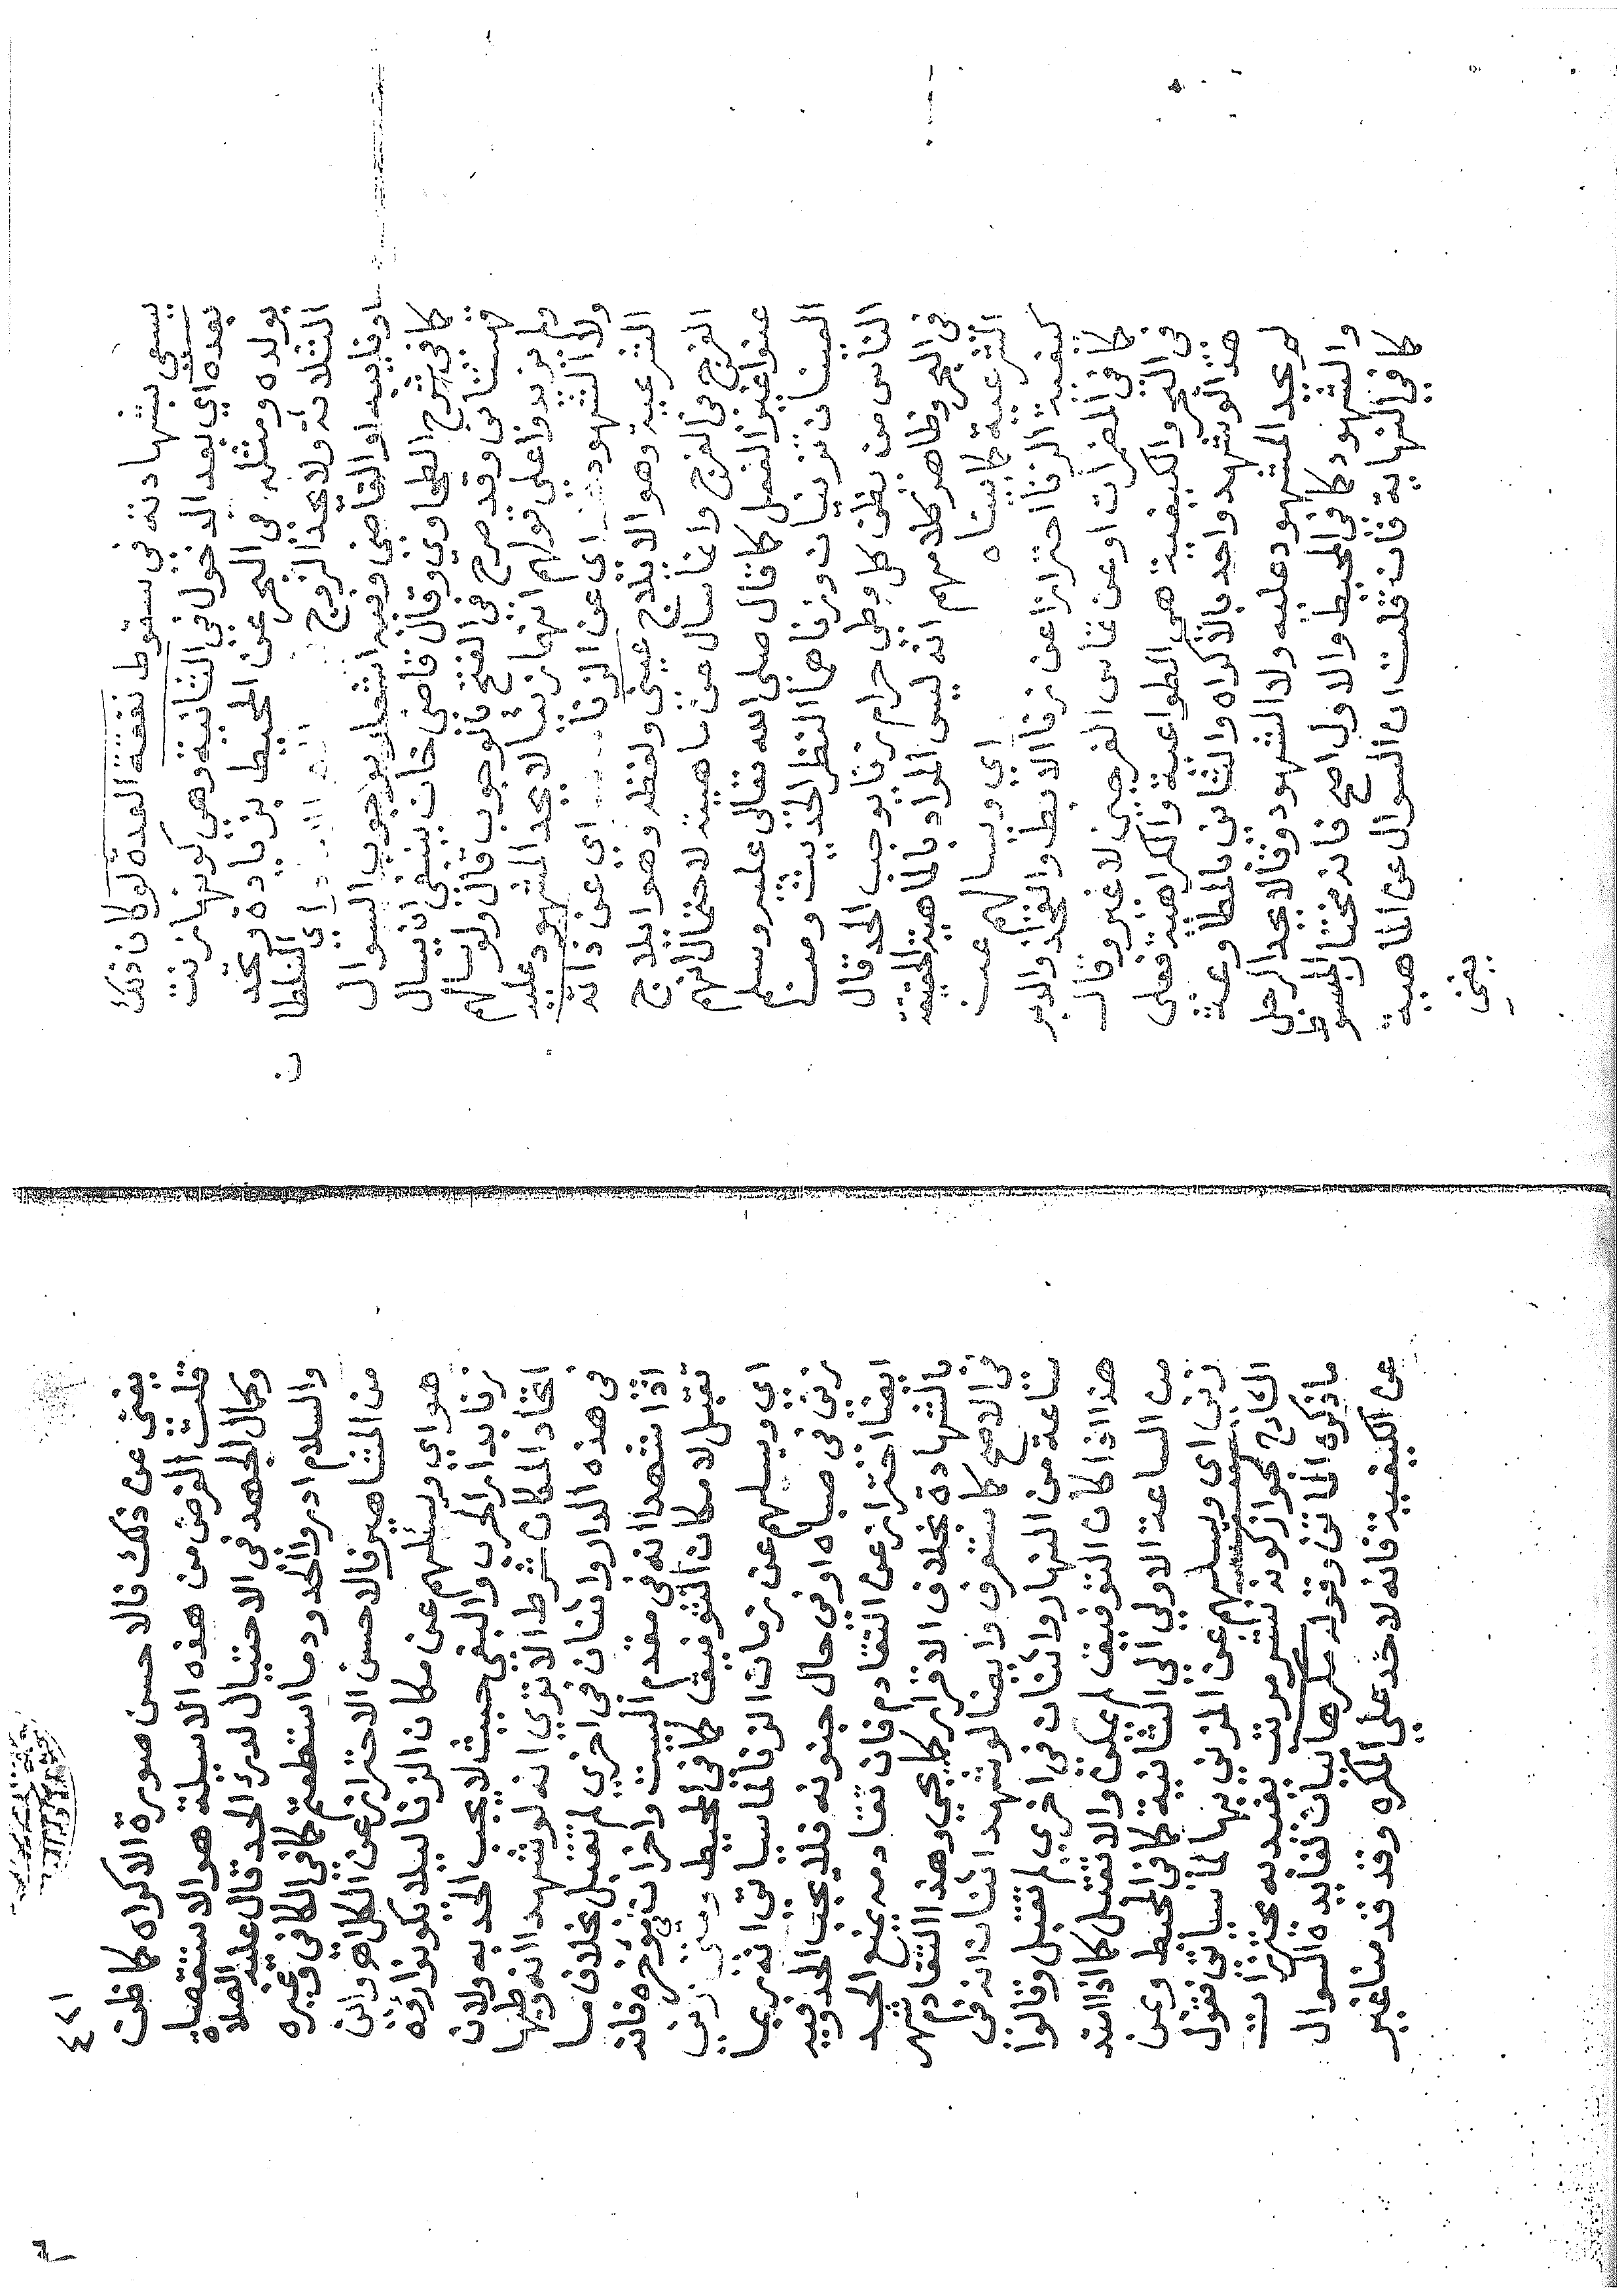 يسعى بشهادته في سقوط نفقة العدة لو كان ذلك
بعده اي بعد الدخول في الثانية وهي كونها زنت
بولده ومثله في البحر عن المحيط بزيادة وتحد
الثلاثة ولا يحد الزوج
او نايبه او القاضي وفيه اشعار بوجوب السوال
كما في شرح الطحاوي وقال قاضي خان ينبغي ان يسال
وقد صرح في الفتح بالوجوب قال ولو سالهم
فلم يزيدوا على قولهم انهما زنيا لا يحد المشهود عليه
ولا الشهود اي عن الزنا اي عن ذاته
الشرعية وهو الايلاج عيني ولفظه وهو ايلاج
الفرج في الفرج وانما سال عن ماهيته لاحتمال انهم
عنوا غير الفعل كما قال صلى الله تعالى عليه وسلم
العينان تزنيان وزناهما النظر الحديث ومن
الناس من يظن كل وطئ حرام زنا يوجب الحد قال
في البحر وظاهر كلامهم انه ليس المراد بالماهية الحقيقة
الشرعية كما بيناه اي ويسالهم عن
كيفية الزنا احترازا عن زنا الابط والفخذ والدبر
كما في المضمرات او عن تماس الفرجين لا غير وقال
في البحر والكيفية هي الطواعية والكراهية فعلى
هذا لو شهد واحد بالاكراه والثاني بالمطاوعة
لم يحد المشهود عليه ولا الشهود وقالا يحد الرجل
والشهود كما في المحيط والاول اصح فانه مختار المبسوط
كما في النهاية فان قلت ان السوال عن الماهية
يغني
٤٢١
يغني عن ذلك فالاحسن صورة الاكراه كما ظن
قلت الغرض من هذه الاسيلة هو الاستقصاء
وكمال الجهد في الاحتيال لدرئ الحد قال عليه الصلاة
والسلام ادروا الحدود ما استطعتم كما في الكافي وغيره
من المشاهير فالاحسن الاحتراز عن الكل هو واين
هو اي ويسئلهم عن مكان الزنا ليلا يكونوا راوه
زنا بدار الحرب والبغي حيث لا يجب الحد به ولان
اتحاد المكان شرط الا تري انه لو شهدا انه وطئها
في هذه الدار واثنان في اخري لم تقبل بخلاف ما
اذا شهدا انه في مقدم البيت واخران في موخره فانه
تقبل لامكان التوفيق كما في المحيط ومتى زنى
اي ويسلهم عن زمان الزنا لما سياتي انه ربما
زنى في صباه او في حال جنونه فلا يجب الحد وفيه
ايضا احتراز عن التقادم فان تقادمه يمنع الحد
بالشهادة بخلاف الاقرار كما يجي وهذا التقادم شهر
في الاصح كما ستعرف وايضا لو شهد اثنان انه في
ساعة من النهار واثنان في اخري لم تقبل وقالوا
هذا اذا كان التوفيق لم يمكن والا تقبل كما اذا امتد
من الساعة الاولي الى الثانية كما في المحيط وعن
زنى اي ويسلهم عن المزني بها لما سياتي تقول
الشارح لجواز كونه تقييده به محترزات
ما ذكره الماتن وقوله مكرها بيان لفايدة السوال
عن الكيفية فانه لا حد على المكره وقد قدمنا غير